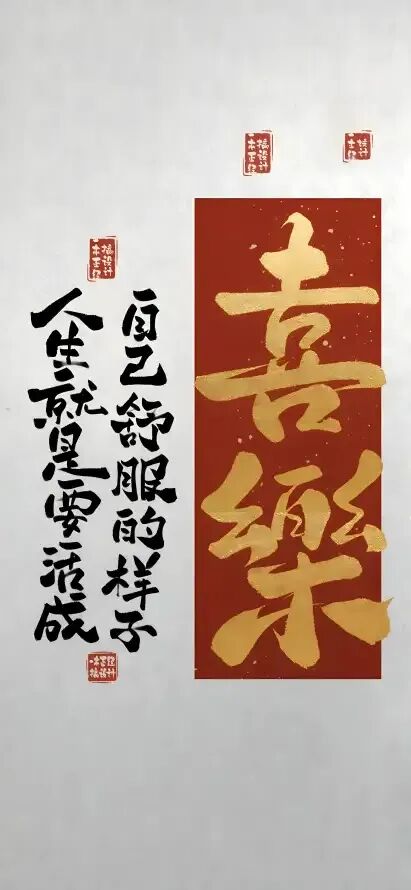 喜樂
人生就是要活成
自己舒服的样子